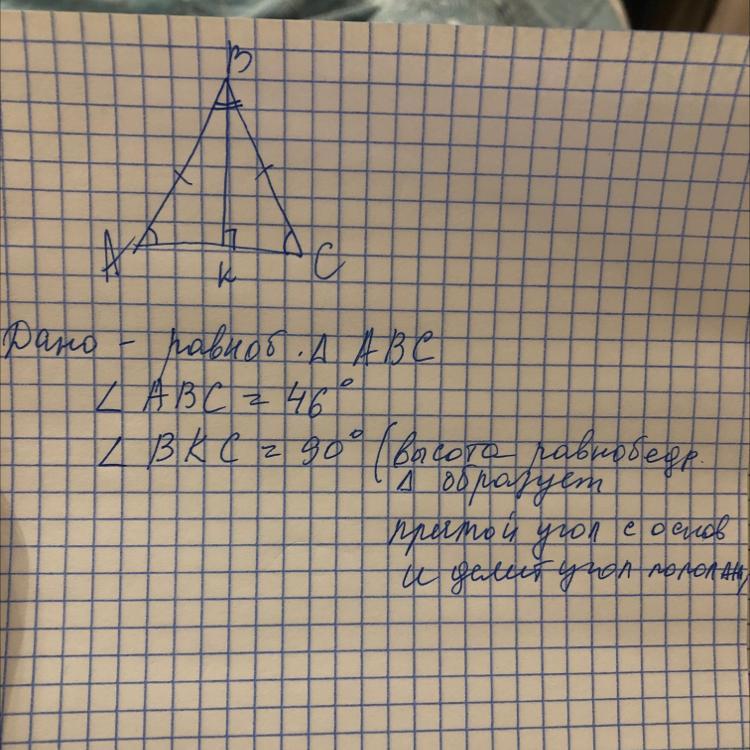 B
A
K
C
Дано - равноб. Δ ABC
∠ ABC = 46°
∠ BKC = 90° (высота равнобедр.
Δ образует
прямой угол с основ
и делит угол пополам